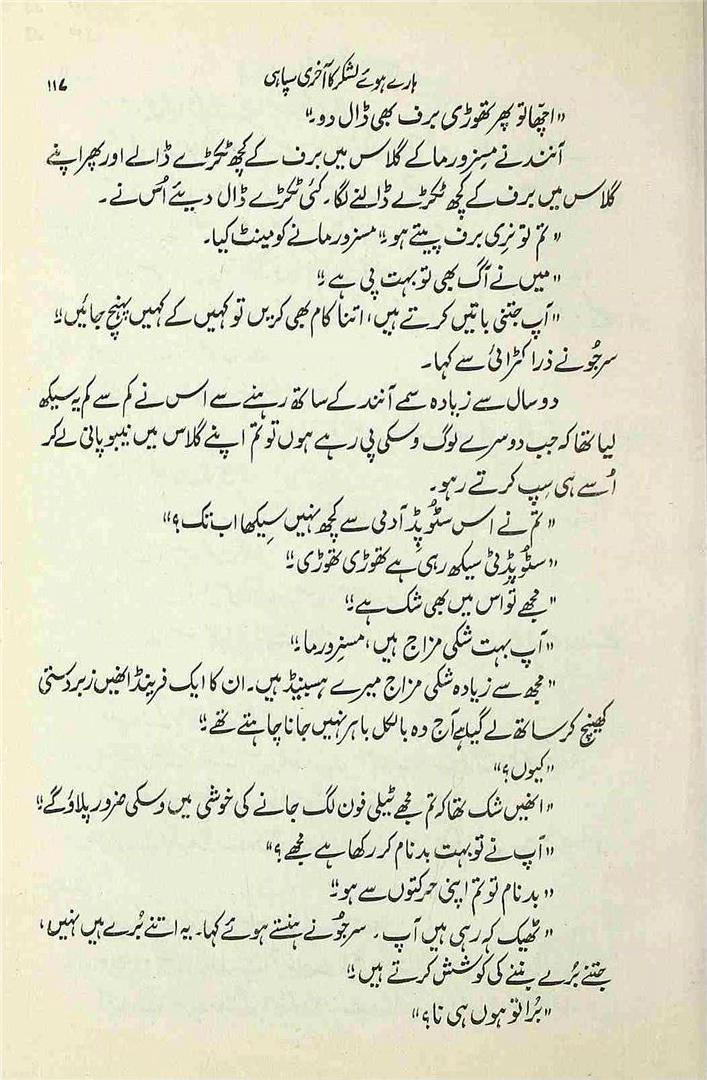 ہارے ہوئے لشکر کا آخری سپاہی ۱۱۷
"اچھا تو پھر تھوڑی برف بھی ڈال دو۔"
آنند نے مسز ورما کے گلاس میں برف کے کچھ ٹکڑے ڈالے اور پھر اپنے
گلاس میں برف کے کچھ ٹکڑے ڈالنے لگا۔ کئی ٹکڑے ڈال دیئے اُس نے۔
"تم تو نِری برف پیتے ہو۔" مسز ورما نے کومینٹ کیا۔
"میں نے آگ بھی تو بہت پی ہے۔"
"آپ جتنی باتیں کرتے ہیں، اتنا کام بھی کریں تو کہیں کے کہیں پہنچ جائیں۔"
سرجُو نے ذرا کڑائی سے کہا۔
دو سال سے زیادہ سمے آنند کے ساتھ رہنے سے اس نے کم سے کم یہ سیکھ
لیا تھا کہ جب دوسرے لوگ وسکی پی رہے ہوں تو تم اپنے گلاس میں نیبو پانی لے کر
اُسے ہی سِپ کرتے رہو۔
"تم نے اس سٹوُپِڈ آدمی سے کچھ نہیں سیکھا اب تک؟"
"سٹوُپِڈٹی سیکھ رہی ہے تھوڑی تھوڑی۔"
"مجھے تو اس میں بھی شک ہے۔"
"آپ بہت شکی مزاج ہیں، مسز ورما۔"
"مجھ سے زیادہ شکی مزاج میرے ہسبینڈ ہیں۔ ان کا ایک فرینڈ انھیں زبردستی
کھینچ کر ساتھ لے گیا ہے آج وہ بالکل باہر نہیں جانا چاہتے تھے۔"
"کیوں؟"
"انھیں شک تھا کہ تم مجھے ٹیلی فون لگ جانے کی خوشی میں وسکی ضرور پلاؤ گے۔"
"آپ نے تو بہت بدنام کر رکھا ہے مجھے؟"
"بدنام تو تم اپنی حرکتوں سے ہو۔"
"ٹھیک کہہ رہی ہیں آپ۔ سرجُو نے ہنستے ہوئے کہا۔ یہ اتنے بُرے ہیں نہیں،
جتنے بُرے بننے کی کوشش کرتے ہیں۔"
"بُرا تو ہوں ہی نا؟"